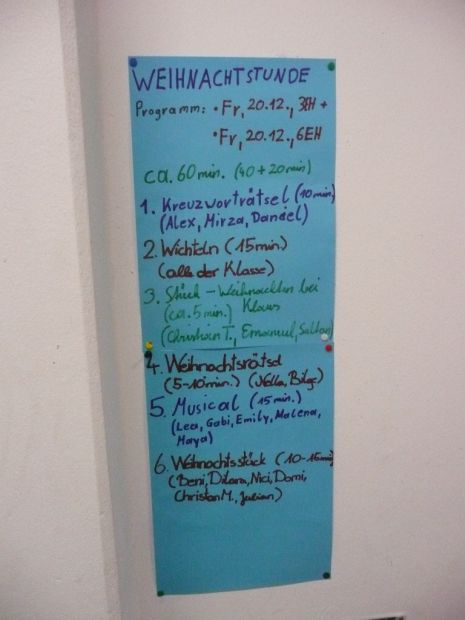 WEIHNACHTSTUNDE
Programm: • Fr, 20.12., 3EH +
• Fr, 20.12., 6EH
ca. 60 min. (40 + 20 min)
1. Kreuzworträtsel (10 min)
(Alex, Mirza, Daniel)
2. Wichteln (15 min)
(alle der Klasse)
3. Stück – Weihnachten bei
(ca. 5 min.) Klaus
(Christian T., Emanuel,
4. Weihnachtsrätsel
(5-10 min.) (Nella, Bilge)
5. Musical (15 min.)
(Lea, Gabi, Emily, Malena,
Maya)
6. Weihnachtsstück (10-15 min)
(Beni, Dilara, Nici, Domi,
Christian M., Julian)